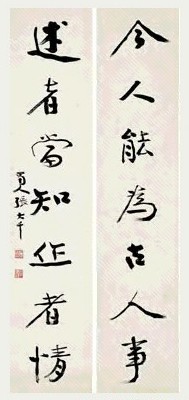 今人能為古人事
述者當知作者情
張大千